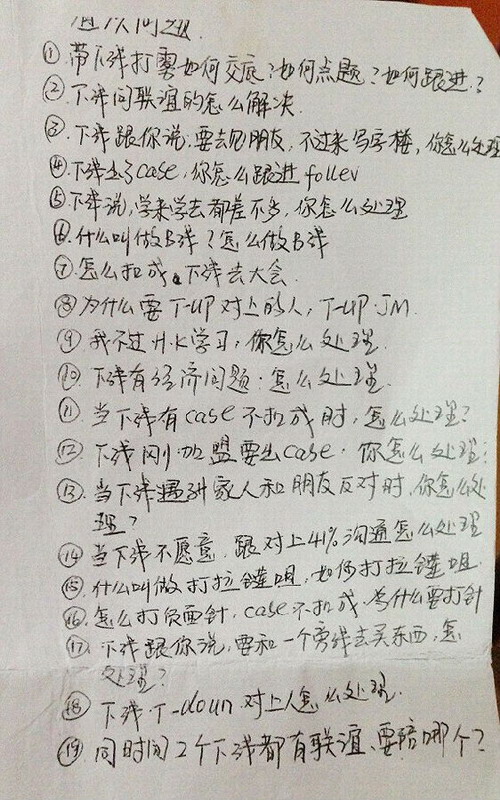 ①带下线打雾如何交底？如何点题？如何跟进？
②下线问联谊的怎么解决.
③下线跟你说.要去见朋友，不过来写字楼，你怎么处理
④下线出了case，你怎么跟进follev
⑤下线说，学来学去都差不多，你怎么处理
⑥什么叫做B线？怎么做B线
⑦怎么扣成 下线去大会.
⑧为什么要T-up对上的人，T-up.JM.
⑨我不过H.K学习，你怎么处理.
⑩下线有经济问题.怎么处理.
⑪当下线有case不扣成时，怎么处理？
⑫下线刚加盟要出case.你怎么处理；
⑬当下线遇到家人和朋友反对时，你怎么处
理？
⑭当下线不愿意，跟对上41%沟通怎么处理
⑮什么叫做打拉链咀，如何打拉链咀.
⑯怎么打负面针，case不扣成.为什么要打针
⑰下线跟你说，要和一个旁线去买东西，怎
处理？
⑱下线T-doun对上人怎么处理.
⑲同时间2个下线都有联谊、要陪哪个？